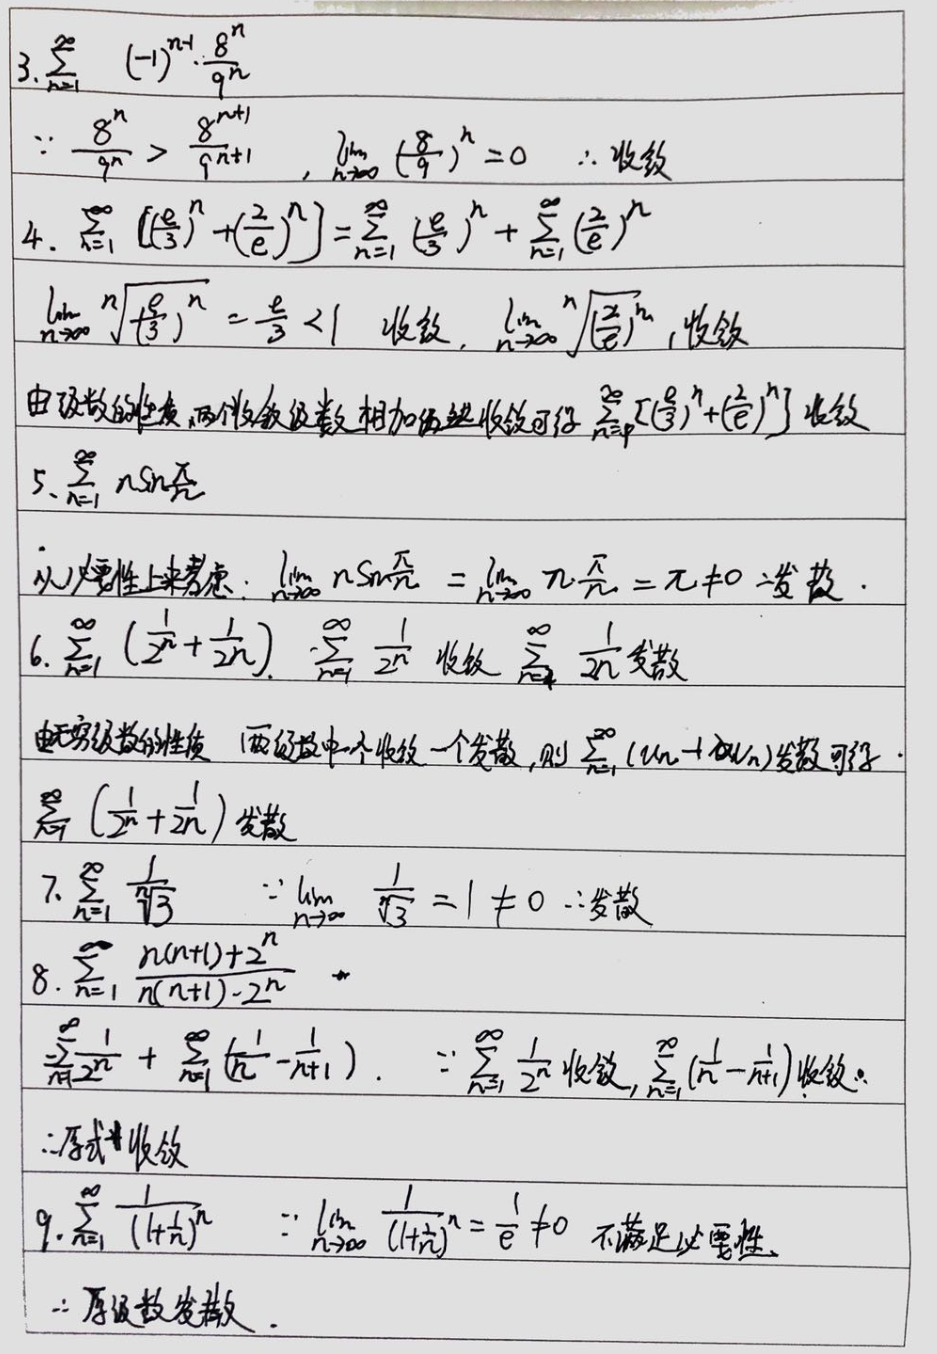 3. ∑_{n=1}^{∞} (-1)^{n-1}·8^n/9^n
∵ 8^n/9^n > 8^{n+1}/9^{n+1}, lim_{n→∞} (8/9)^n = 0 ∴收敛
4. ∑_{n=1}^{∞} [(e/3)^n + (2/e)^n] = ∑_{n=1}^{∞} (e/3)^n + ∑_{n=1}^{∞} (2/e)^n
lim_{n→∞} ⁿ√(e/3)^n = e/3 < 1 收敛, lim_{n→∞} ⁿ√(2/e)^n, 收敛
由级数的性质,两个收敛级数相加 收敛可得 ∑_{n=1}^{∞} [(e/3)^n + (2/e)^n] 收敛
5. ∑_{n=1}^{∞} n sin π/n
从必要性上来考虑: lim_{n→∞} n sin π/n = lim_{n→∞} n π/n = π ≠ 0 ∴发散.
6. ∑_{n=1}^{∞} (1/2^n + 1/2n). ∑_{n=1}^{∞} 1/2^n 收敛 ∑_{n=1}^{∞} 1/2n 发散
由无穷级数的性质 两级数中一个收敛一个发散,则 ∑_{n=1}^{∞} (u_n + v_n) 发散可得
∑_{n=1}^{∞} (1/2^n + 1/2n) 发散
7. ∑_{n=1}^{∞} 1/ⁿ√3 ∵ lim_{n→∞} 1/ⁿ√3 = 1 ≠ 0 ∴发散
8. ∑_{n=1}^{∞} (n(n+1)+2^n)/(n(n+1)·2^n)
∑_{n=1}^{∞} 1/2^n + ∑_{n=1}^{∞} (1/n - 1/(n+1)). ∵ ∑_{n=1}^{∞} 1/2^n 收敛, ∑_{n=1}^{∞} (1/n - 1/(n+1)) 收敛.
∴原式收敛
9. ∑_{n=1}^{∞} 1/(1+1/n)^n ∵ lim_{n→∞} 1/(1+1/n)^n = 1/e ≠ 0 不满足必要性、
∴原级数发散.